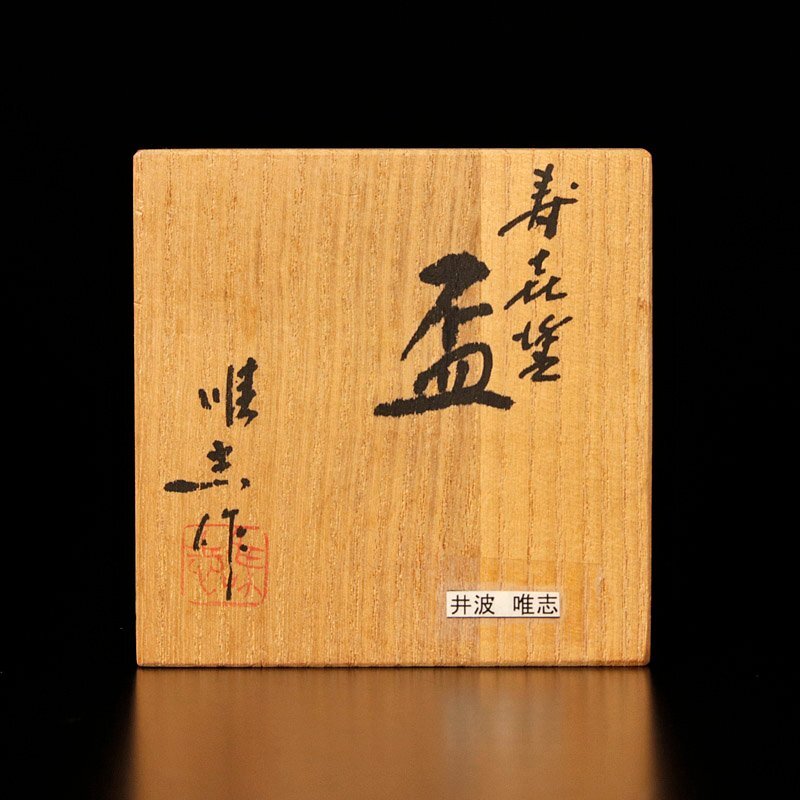 寿喜塗
盃
唯志作
井波 唯志